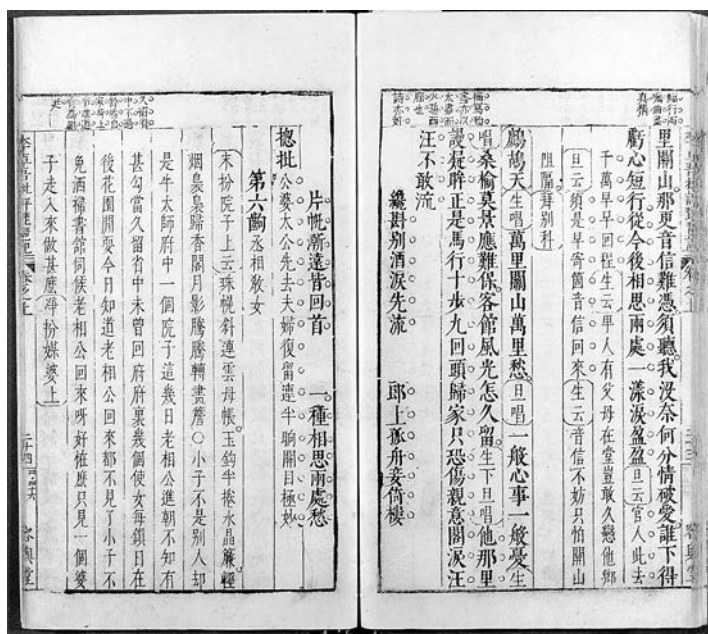 里關山那更音信難憑須聽我没奈何分情破愛誰下得
虧心短行從今後相思兩處一樣淚盈盈旦云官人此去
千萬早早回程生云卑人有父母在堂豈敢久戀他鄉
旦云須是早寄箇音信回來生云音信不妨只怕關山
阻隔拜别科
鷓鴣天生唱萬里關山萬里愁旦唱一般心事一般憂生
唱桑榆莫景應難保客館風光怎久留生下旦唱他那里
謾凝眸正是馬行十步九回頭歸家只恐傷親意閣淚汪
汪不敢流
纔斟别酒淚先流
郎上孤舟妾倚樓
片帆漸遠皆回首
一種相思兩處愁
總批
公婆太公先去夫婦復留連半晌開目極妙
第六齣
丞相教女
末扮院子上云珠幌斜連雲母帳玉鈎半捲水晶簾輕
烟裊裊歸香閣月影騰騰轉畫簷○小子不是别人却
是牛太師府中一個院子這幾日老相公進朝不知有
甚勾當久留省中未曾回府府裏幾個使女每鎮日在
後花園閒耍今日知道老相公回來都不見了小子不
免洒掃書館伺候老相公回來呀好怪麽只見一個婆
子走入來做甚麽淨扮媒婆上
二十四
容與堂